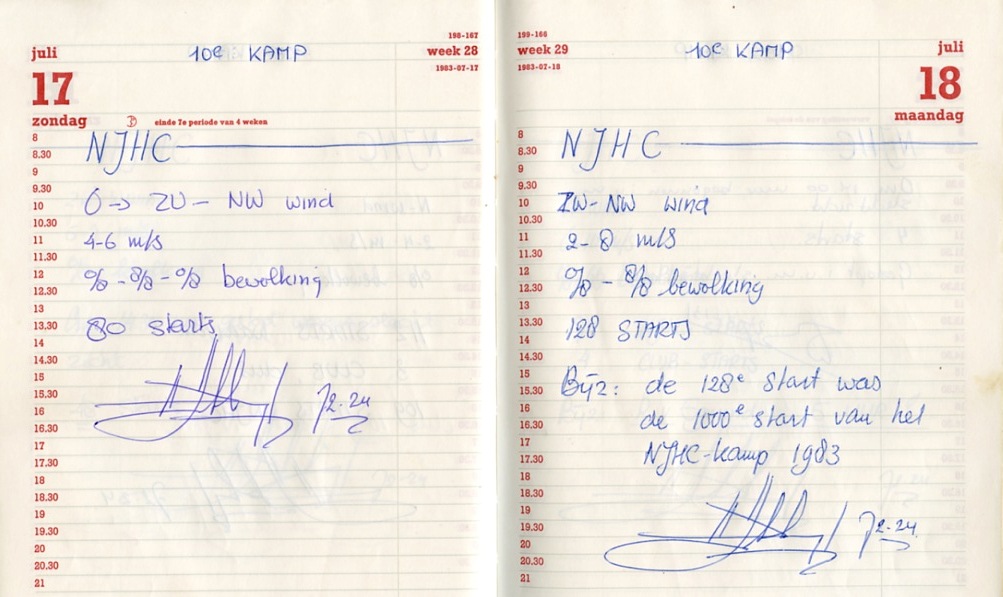 198-167
juli 10e KAMP week 28
1983-07-17
17
zondag einde 7e periode van 4 weken
8 NJHC
8.30
9
9.30
10 O → ZW - NW wind
10.30
11 4-6 m/s
11.30
12 0/8 - 8/8 - 0/8 bewolking
12.30
13
13.30 80 starts
14
14.30
15
15.30
16
16.30
17
17.30
18
18.30
19
19.30
20
20.30
21
199-166
week 29 10e KAMP juli
1983-07-18
18
maandag
8 NJHC
8.30
9
9.30
10 ZW-NW wind
10.30
11 2-8 m/s
11.30
12 0/8 - 8/8 bewolking
12.30
13
13.30 128 STARTS
14
14.30
15
15.30 Bijz: de 128e start was
16
16.30 de 1000e start van het
17
17.30 NJHC-kamp 1983
18
18.30
19
19.30
20
20.30
21